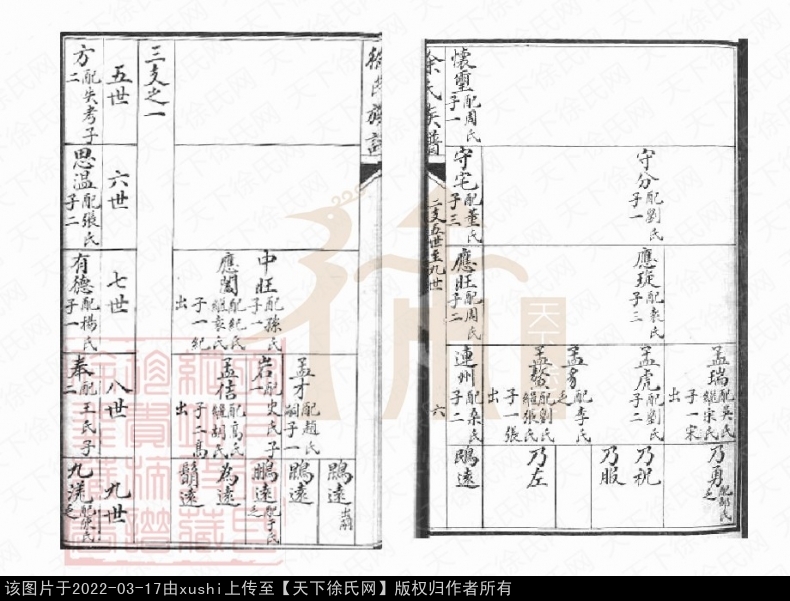 懷璽配周氏子一
守宅配董氏子三
守分配劉氏子一
應旺配周氏子二
應璇配袁氏子三
連州配桑氏子二
孟鰲配劉氏繼張氏子一張出
孟秀配李氏乏
孟虎配劉氏子二
孟瑞配吳氏繼宋氏子一宋出
鵾遠
乃左
乃服
乃祝
乃勇配邹氏乏
徐氏族譜
二支五世至九世
六
徐氏族譜
三支之一
五世
方配失考子二
六世
思溫配張氏子二
七世
有德配楊氏子一
應閣配紀氏繼袁氏子一紀出
中旺配孫氏子一
八世
奉配王氏子二
孟信配高氏繼胡氏子二高出
岩配史氏子一
孟才配趙氏嗣子一
九世
九流配陳氏乏
鵬遠
為遠
鵬遠配于氏乏
鵾遠
鵾遠出嗣
天下徐氏网
该图片于2022-03-17由xushi上传至【天下徐氏网】版权归作者所有